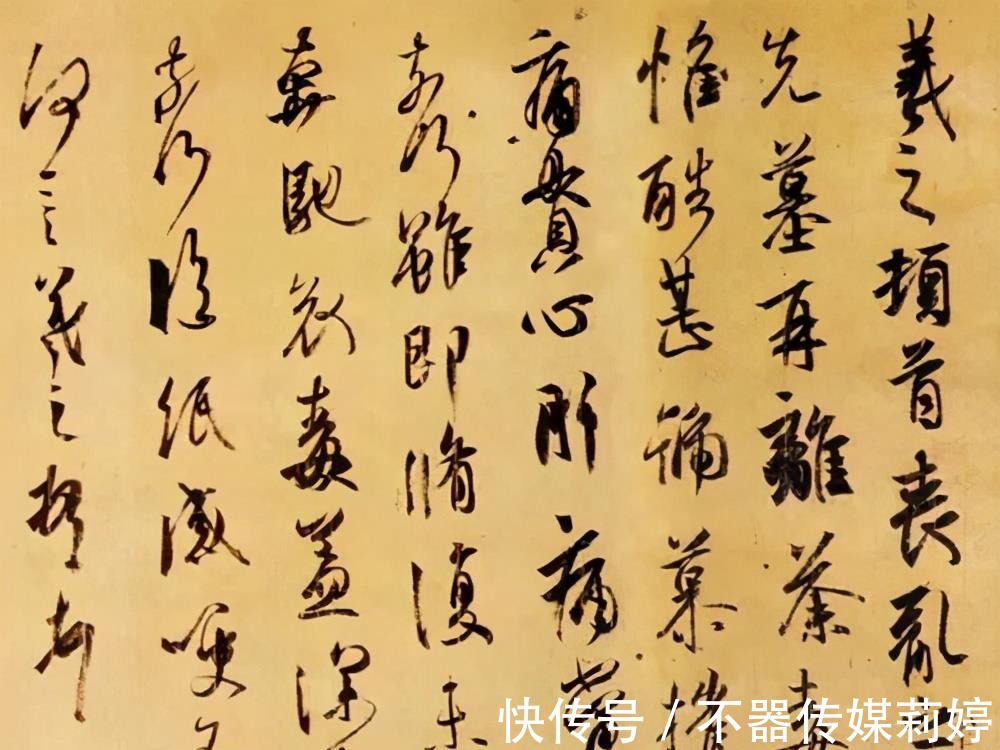 羲之頓首喪亂
先墓再離荼毒
惟酷甚號慕摧
痛貫心肝痛當
奈何雖即脩復未
奔馳哀毒益深
奈何臨紙感哽不
何言羲之頓首
快传号 / 不器传媒莉婷